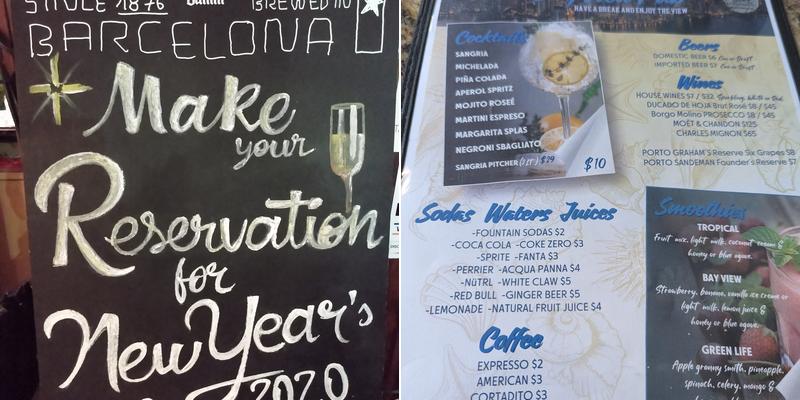 SINCE 1876
Damm
BREWED IN
BARCELONA
Make
your
Reservation
for
New Year's
2020
HAVE A BREAK AND ENJOY THE VIEW
Cocktails
SANGRIA
MICHELADA
PIÑA COLADA
APEROL SPRITZ
MOJITO ROSEÉ
MARTINI ESPRESO
MARGARITA SPLAS
NEGRONI SBAGLIATO
SANGRIA PITCHER (1LT) $29
$10
Beers
DOMESTIC BEER $6 Can or Draft
IMPORTED BEER $7 Can or Draft
Wines
HOUSE WINES $7 / $32 Sparkling, White or Red
DUCADO DE HOJA Brut Rosé $8 / $45
Borgo Molino PROSECCO $8 / $45
MOËT & CHANDON $125
CHARLES MIGNON $65
PORTO GRAHAM'S Reserve Six Grapes $8
PORTO SANDEMAN Founder's Reserve $7
Sodas Waters Juices
-FOUNTAIN SODAS $2
-COCA COLA -COKE ZERO $3
-SPRITE -FANTA $3
-PERRIER -ACQUA PANNA $4
-NüTRL -WHITE CLAW $5
-RED BULL -GINGER BEER $5
-LEMONADE -NATURAL FRUIT JUICE $4
Coffee
EXPRESSO $2
AMERICAN $3
CORTADITO $3
Smoothies
TROPICAL
Fruit mix, light milk, coconut cream &
honey or blue agave.
BAY VIEW
Strawberry, banana, vanilla ice cream or
light milk, lemon juice &
honey or blue agave.
GREEN LIFE
Apple granny smith, pineapple,
spinach, celery, mango &